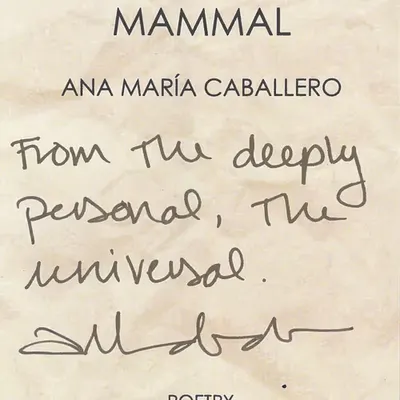 MAMMAL
ANA MARÍA CABALLERO
From the deeply
personal, the
universal.
POETRY